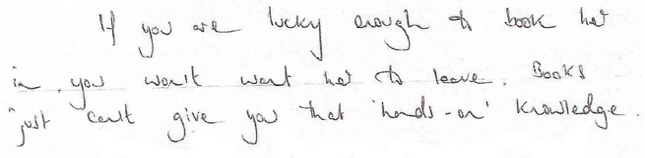 If you are lucky enough to book her
in, you won't want her to leave. Books
just can't give you that 'hands-on' knowledge.